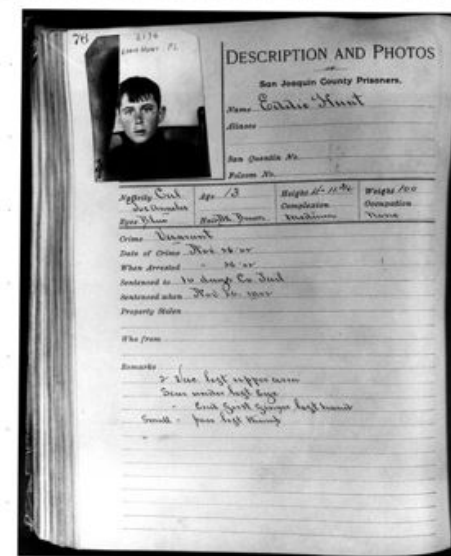 76
DESCRIPTION AND PHOTOS
San Joaquin County Prisoners.
Name Eddie Hunt
Aliases
San Quentin No.
Folsom No.
Nativity Cal Age 13 Height Weight 100
Los Angeles Complexion Occupation
Eyes Blue Hair Dk Brown Medium None
Crime Vagrant
Date of Crime Nov 26 02
When Arrested " 26 02
Sentenced to 10 days Co Jail
Sentenced when Nov 26 1902
Property Stolen
Who from
Remarks
2 Vac left upper arm
Scar under left Eye
" End first finger left hand
Small " left thumb